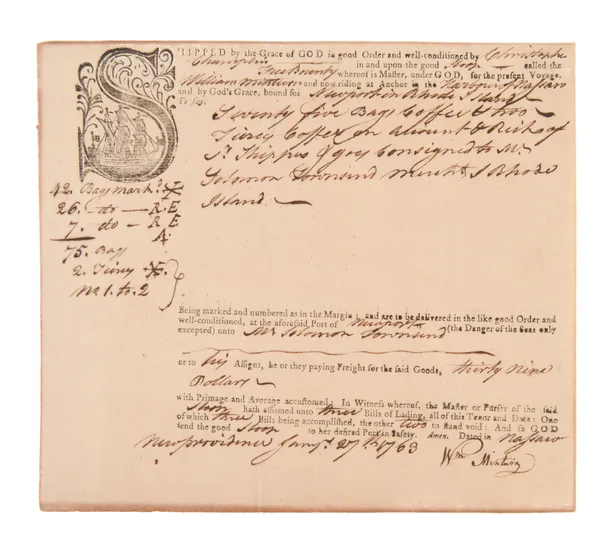 SHIPPED by the Grace of GOD in good Order and well-conditioned by Christophe
Champlin in and upon the good Sloop called the
Free Bounty whereof is Master, under GOD, for the present Voyage,
William Minturn and now riding at Anchor in the Harbour of Nassaw
and by God's Grace, bound for Newport in Rhode Island
To say,
Seventy five Bags Coffee & two
Tierces Coffee on Account & Risk of
Shippers & goes Consigned to Mr.
Solomon Townsend mercht. Rhode
Island.
42. Bags mark'd
26. do — R E
7. do — R E
A
75. Bags
2. Tierces
No. 1. to 2
Being marked and numbered as in the Margin; and are to be delivered in the like good Order and
well-conditioned, at the aforesaid Port of Newport (the Danger of the Seas only
excepted) unto Mr. Solomon Townsend
or to his Assigns, he or they paying Freight for the said Goods, thirty Nine
Dollars
with Primage and Average accustomed: In Witness whereof, the Master or Purser of the said
Sloop hath affirmed unto three Bills of Lading, all of this Tenor and Date: One
of which three Bills being accomplished, the other two to stand void: And so GOD
send the good Sloop to her desired Port in Safety. Amen. Dated in Nassaw
New providence Jany. 27th. 1763
Wm. Minturn